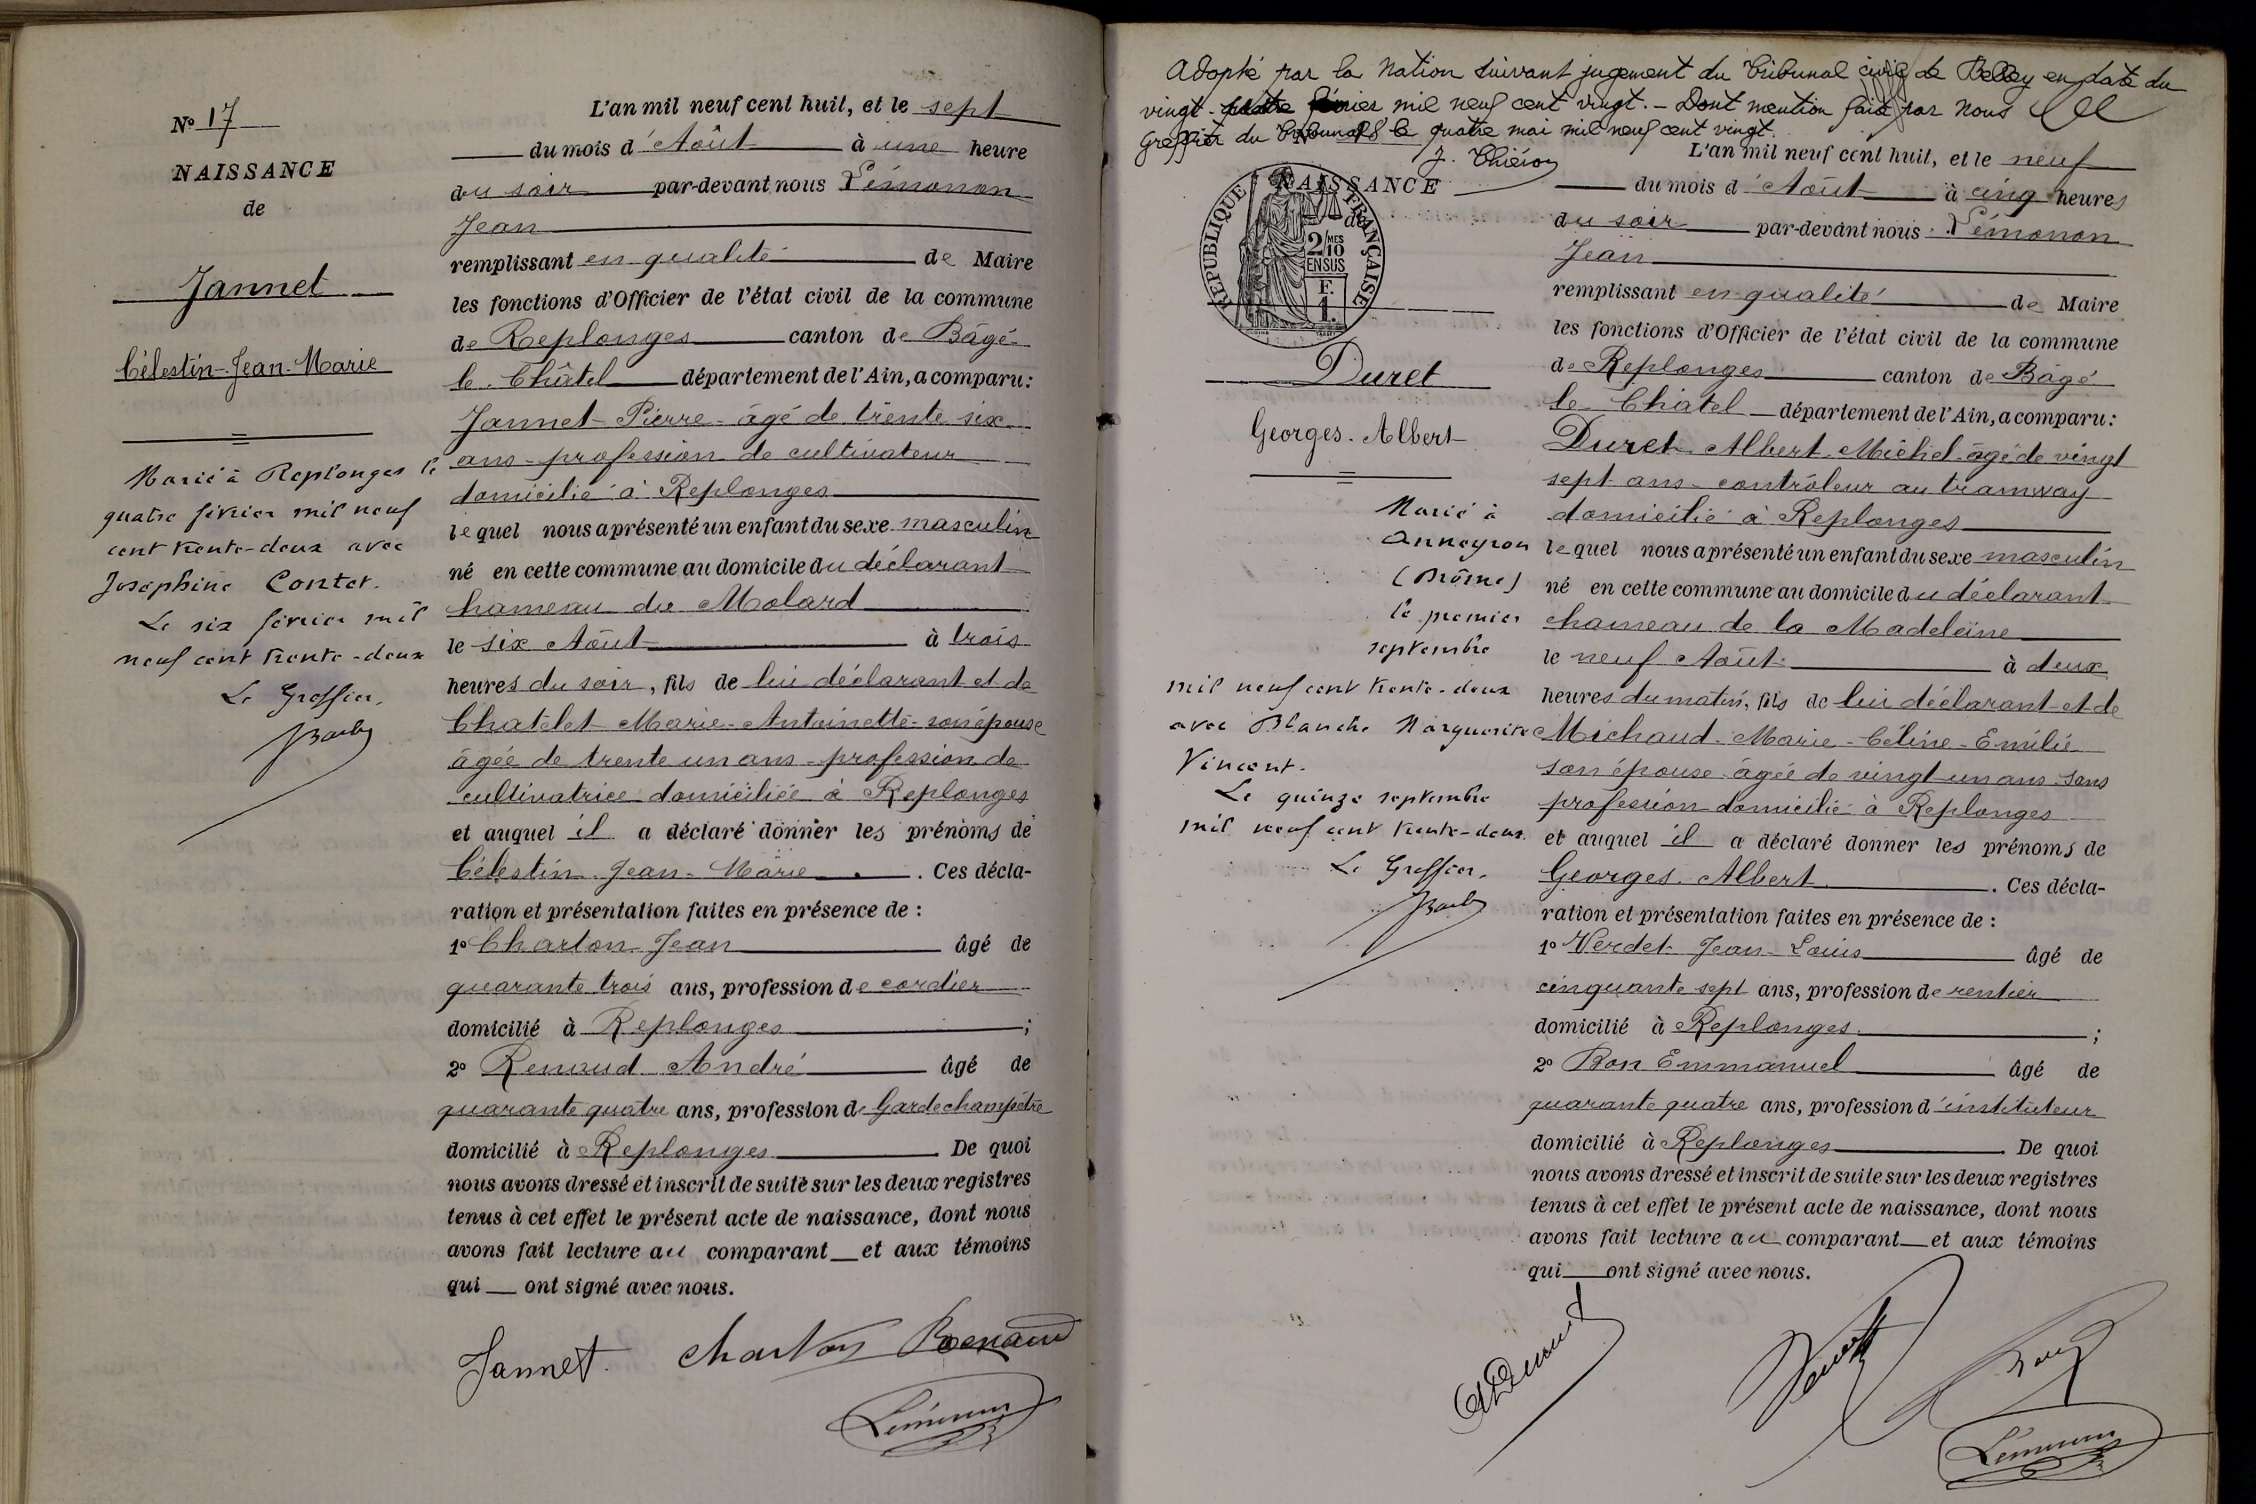 N° 17
NAISSANCE
de
Jannet
Célestin-Jean-Marie
Marié à Replonges le
quatre février mil neuf
cent trente-deux avec
Josephine Contet.
Le six février mil
neuf cent trente-deux
Le Greffier,
L'an mil neuf cent huit, et le sept
du mois d'Août à une heure
du soir par-devant nous Lémonon
Jean
remplissant en qualité de Maire
les fonctions d'Officier de l'état civil de la commune
de Replonges canton de Bâgé
le Châtel département de l'Ain, a comparu:
Jannet Pierre âgé de trente six
ans profession de cultivateur
domicilié à Replonges
lequel nous a présenté un enfant du sexe masculin
né en cette commune au domicile du déclarant
hameau du Molard
le six Août à trois
heures du soir, fils de lui déclarant et de
Chatelet Marie-Antoinette son épouse
âgée de trente un ans profession de
cultivatrice domiciliée à Replonges
et auquel il a déclaré donner les prénoms de
Célestin Jean-Marie . Ces décla-
ration et présentation faites en présence de :
1° Charton Jean âgé de
quarante trois ans, profession de cordier
domicilié à Replonges ;
2° Renaud André âgé de
quarante quatre ans, profession de Garde champêtre
domicilié à Replonges . De quoi
nous avons dressé et inscrit de suite sur les deux registres
tenus à cet effet le présent acte de naissance, dont nous
avons fait lecture au comparant et aux témoins
qui ont signé avec nous.
Jannet. Charton Renaud
Lémonon
Adopté par la Nation suivant jugement du Tribunal civil de Belley en date du
vingt février mil neuf cent vingt. - Dont mention faite par nous
Greffier du Tribunal le quatre mai mil neuf cent vingt.
N° 18
NAISSANCE
de
REPUBLIQUE FRANÇAISE
2/10 MES
EN SUS
F.
1.
Duret
Georges-Albert
Marié à
Anneyron
(Drôme)
le premier
septembre
mil neuf cent trente-deux
avec Blanche Marguerite
Vincent.
Le quinze septembre
mil neuf cent trente-deux.
Le Greffier,
L'an mil neuf cent huit, et le neuf
du mois d'Août à cinq heures
du soir par-devant nous Lémonon
Jean
remplissant en qualité de Maire
les fonctions d'Officier de l'état civil de la commune
de Replonges canton de Bâgé
le Châtel département de l'Ain, a comparu:
Duret Albert Michel âgé de vingt
sept ans contrôleur au tramway
domicilié à Replonges
lequel nous a présenté un enfant du sexe masculin
né en cette commune au domicile du déclarant
hameau de la Madeleine
le neuf Août à deux
heures du matin, fils de lui déclarant et de
Michaud Marie-Céline-Emilie
son épouse âgée de vingt un ans sans
profession domicilié à Replonges
et auquel il a déclaré donner les prénoms de
Georges Albert . Ces décla-
ration et présentation faites en présence de :
1° Verdet Jean-Louis âgé de
cinquante sept ans, profession de rentier
domicilié à Replonges ;
2° Bon Emmanuel âgé de
quarante quatre ans, profession d'instituteur
domicilié à Replonges . De quoi
nous avons dressé et inscrit de suite sur les deux registres
tenus à cet effet le présent acte de naissance, dont nous
avons fait lecture au comparant et aux témoins
qui ont signé avec nous.
Lémonon